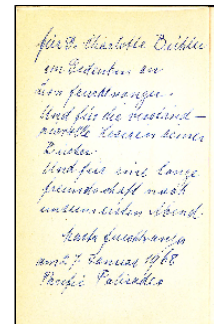 für Dr. Charlotte Bühler
im Gedenken an
Lion Feuchtwanger.
Und für die
seiner
Bücher.
Und für eine lange
Freundschaft nach
unserem ersten Abend.
Marta Feuchtwanger
am 27. Januar 1968
Pacific Palisades